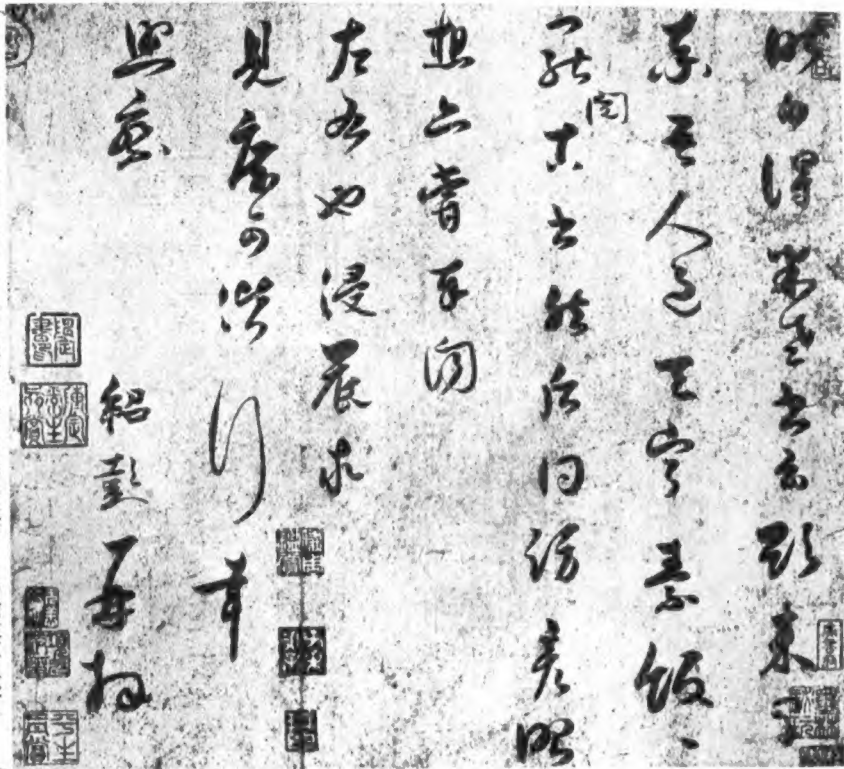 昨日得米老書云欲來
率吾人過天寧素飯〻
罷閱古書然後同訪彥昭
想亦嘗奉聞
左右也浸晨求
見庶可偕行幸
照察
紹彭再拜